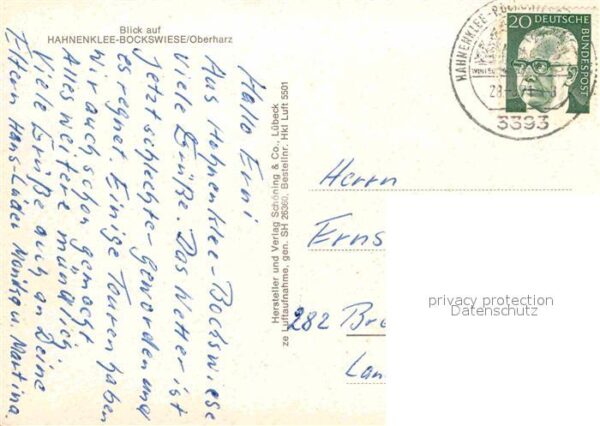 Blick auf
HAHNENKLEE-BOCKSWIESE/Oberharz
Hallo Erni
Aus Hahnenklee-Bockswiese
viele Grüße. Das Wetter ist
jetzt schlechter geworden und
es regnet. Einige Touren haben
wir auch schon gemacht
Alles weitere mündlich.
Viele Grüße auch an Deine
Eltern Hans-Lüder Moritz u. Martina.
Hersteller und Verlag Schöning & Co., Lübeck
ze Luftaufnahme, gen. SH 26360, Bestellnr. Hkl Luft 5501
HAHNENKLEE-BOCKSWIESE
3393
20 DEUTSCHE
BUNDESPOST
Herrn
Erns
282 Bre
Lan
privacy protection
Datenschutz